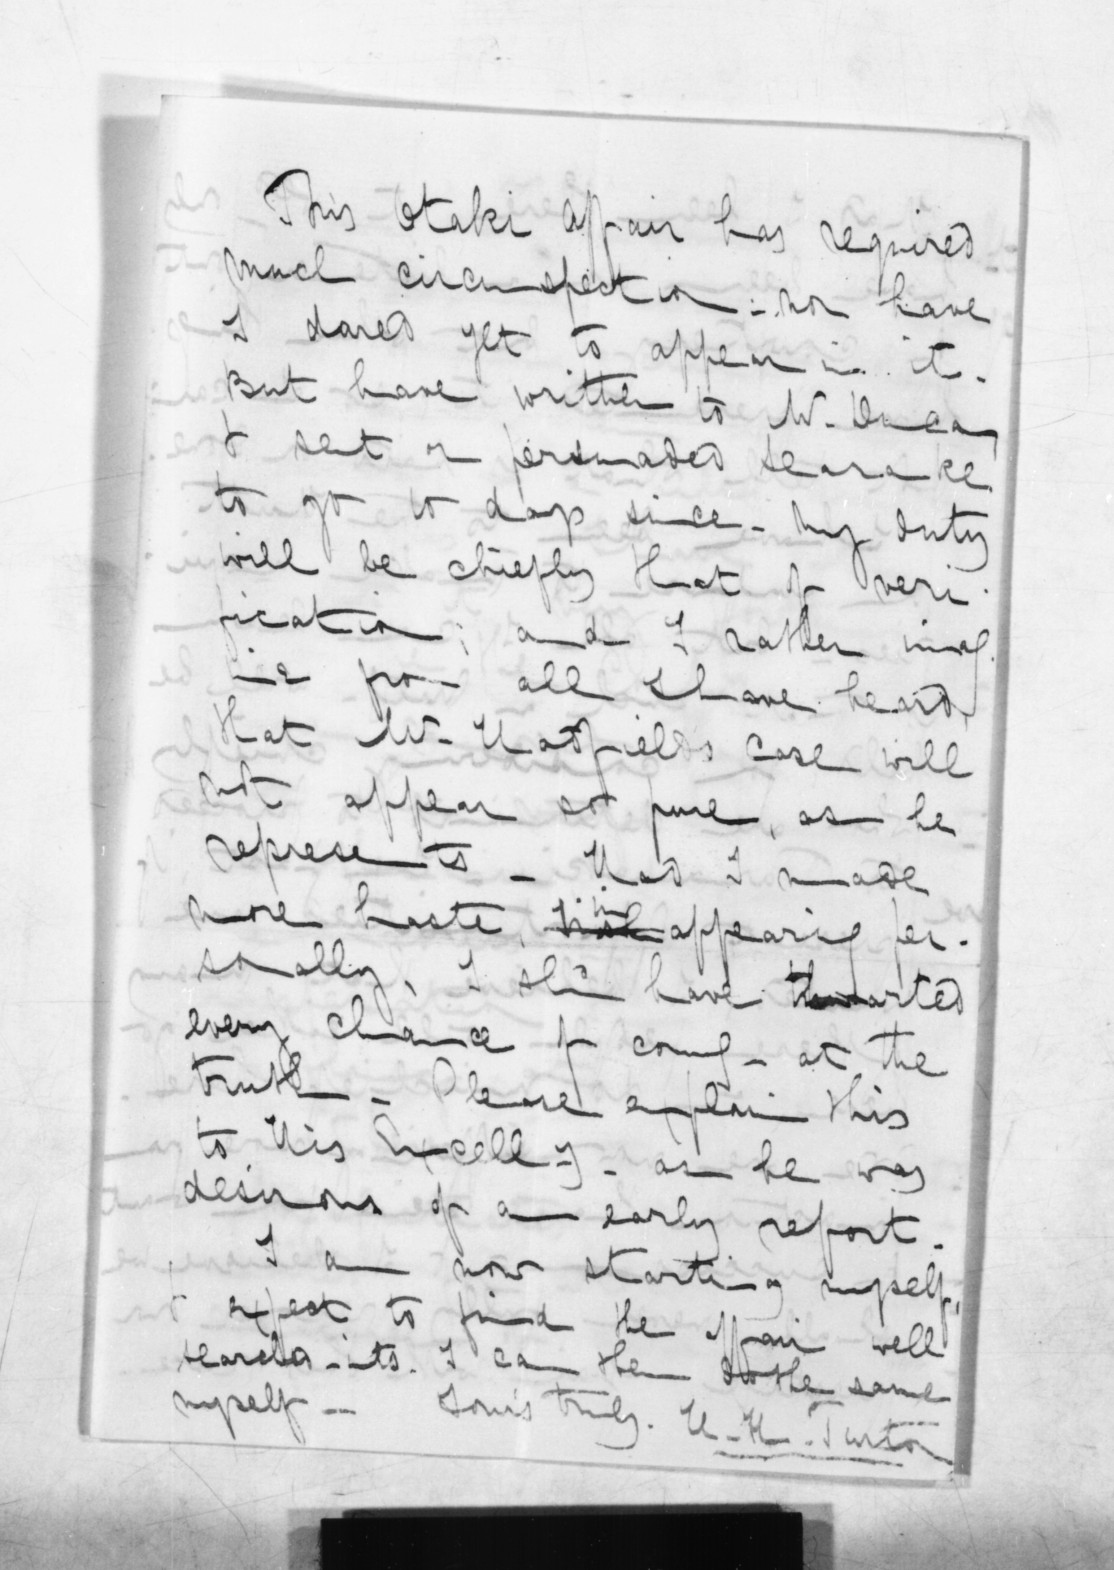 This Otaki Affair has required
much circumspection :- nor have
I dared yet to appear in it.
But have written to Mr. Duncan,
& sent or persuaded Searancke
to go to days since - My duty
will be chiefly that of veri-
fication; and I rather imag-
ine from all I have heard,
that Mr. Hadfield's case will
not appear so pure, as he
represents - Had I made
more haste, in appearing per-
sonally, I shd have thwarted
every chance of coming at the
truth - Please explain this
to His Excelly - as he was
desirous of an early report.
I am now starting myself,
& expect to find the affair well
searched into. I can then do the same
myself - Yours truly. H. H. Turton